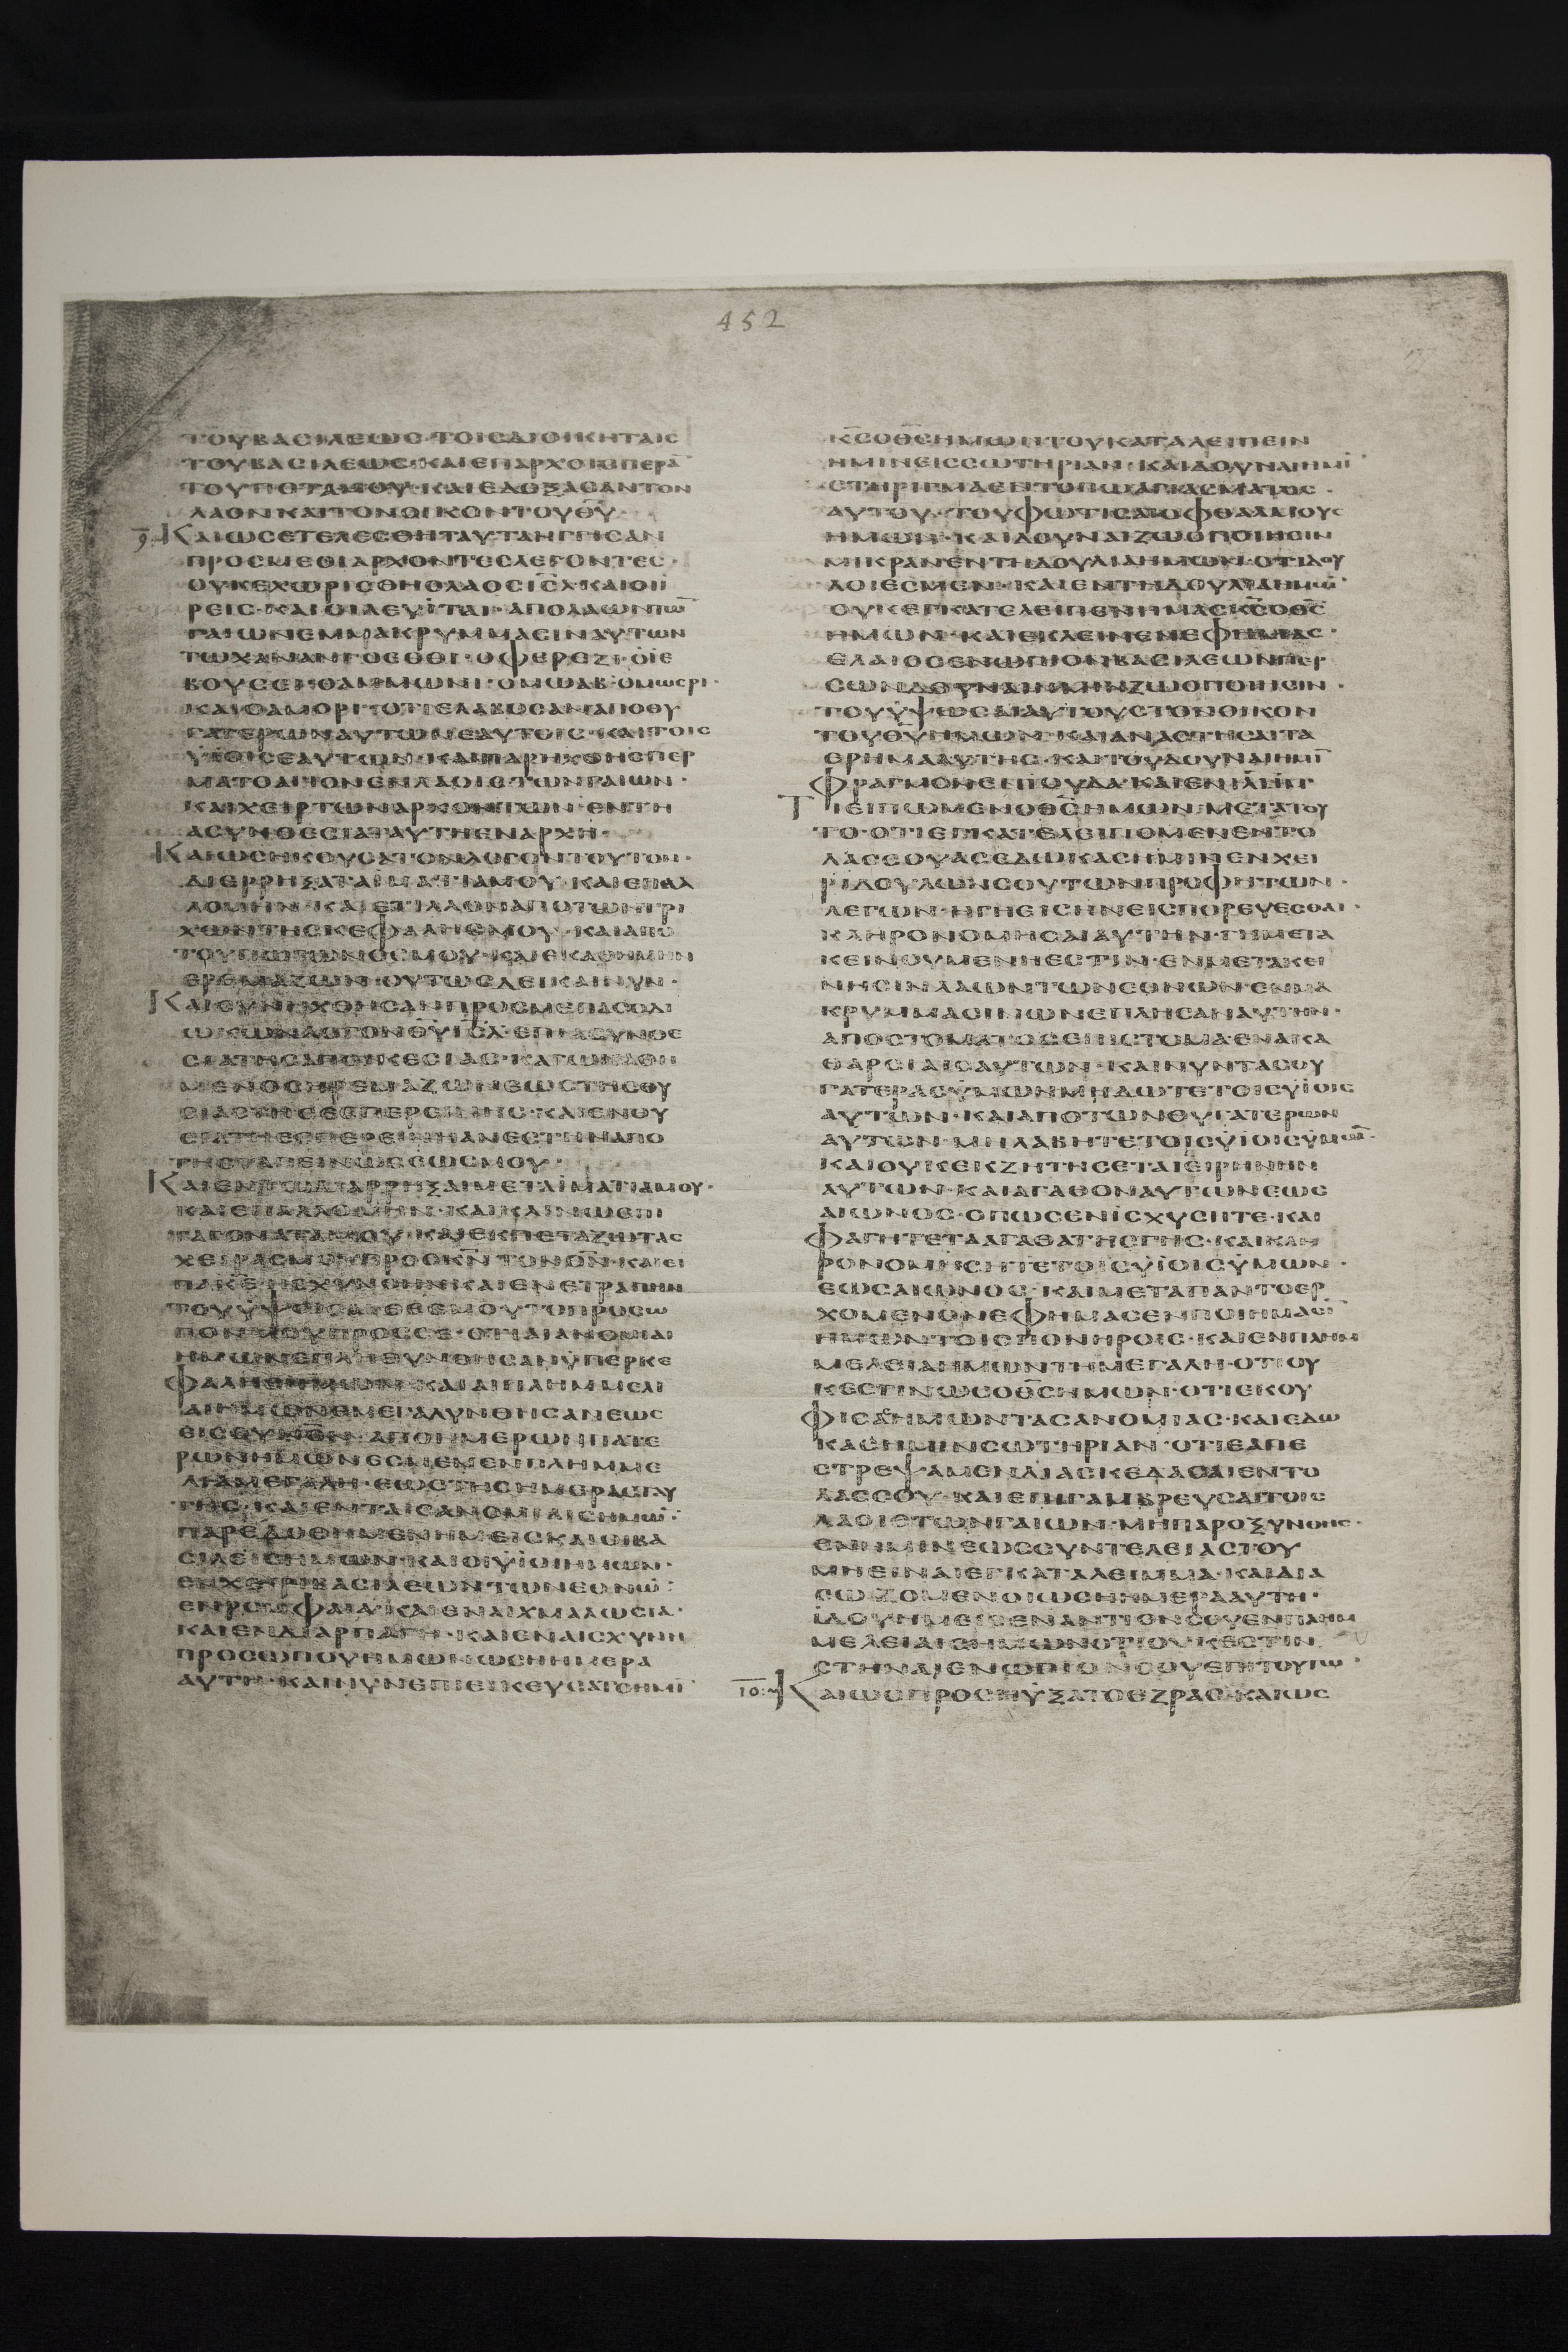 452
ΤΟΥΒΑCΙΛΕΩC·ΤΟΙCΔΙΟΙΚΗΤΑΙC
ΤΟΥΒΑCΙΛΕΩC·ΚΑΙΕΠΑΡΧΟΙCΠΕΡΑ̅
ΤΟΥΠΟΤΑΜΟΥ·ΚΑΙΕΔΟΞΑCΑΝΤΟΝ
ΛΑΟΝΚΑΙΤΟΝΟΙΚΟΝΤΟΥΘ̅Υ̅·
9. ΚΑΙΩCΕΤΕΛΕCΘΗΤΑΥΤΑΗΓΓΙCΑΝ
ΠΡΟCΜΕΟΙΑΡΧΟΝΤΕCΛΕΓΟΝΤΕC·
ΟΥΚΕΧΩΡΙCΘΗΟΛΑΟCΙ̅C̅Λ̅·ΚΑΙΟΙΪ
ΡΕΙC·ΚΑΙΟΙΛΕΥΪΤΑΙ·ΑΠΟΛΑΩΝΤΩ̅
ΓΑΙΩΝΕΜΜΑΚΡΥΜΜΑCΙΝΑΥΤΩΝ
ΤΩΧΑΝΑΝΙ·ΟΕΘΘΙ·ΟΦΕΡΕΖΙ·ΟΪΕ
ΒΟΥCΕΙ·ΟΑΜΜΩΝΙ·ΟΜΩΑΒ·ΟΜΩCΡΙ·
ΚΑΙΟΑΜΟΡΙ·ΟΤΙΕΛΑΒΟCΑΝΑΠΟΘΥ
ΓΑΤΕΡΩΝΑΥΤΩΝΕΑΥΤΟΙC·ΚΑΙΤΟΙC
ΥΪΟΙCΕΑΥΤΩΝ·ΚΑΙΠΑΡΗΧΘΗCΠΕΡ
ΜΑΤΟΑΓΙΟΝΕΝΛΑΟΙCΤΩΝΓΑΙΩΝ·
ΚΑΙΧΕΙΡΤΩΝΑΡΧΟΝΤΩΝ·ΕΝΤΗ
ΑCΥΝΘΕCΙΑΤΑΥΤΗΕΝΑΡΧΗ·
ΚΑΙΩCΗΚΟΥCΑΤΟΝΛΟΓΟΝΤΟΥΤΟΝ·
ΔΙΕΡΡΗΞΑΤΑΪΜΑΤΙΑΜΟΥ·ΚΑΙΕΠΑΛ
ΛΟΜΗΝ·ΚΑΙΕΤΙΛΛΟΝΑΠΟΤΩΝΤΡΙ
ΧΩΝΤΗCΚΕΦΑΛΗCΜΟΥ·ΚΑΙΑΠΟ
ΤΟΥΠΩΓΩΝΟCΜΟΥ·ΚΑΙΕΚΑΘΗΜΗΝ
ΕΡΕΜΑΖΩΝ·ΟΥΤΩCΑΕΙΚΑΙΝΥΝ·
ΚΑΙCΥΝΗΧΘΗCΑΝΠΡΟCΜΕΠΑCΟΔΙ
ΩΚΩΝΛΟΓΟΝΘ̅Υ̅Ι̅C̅Λ̅·ΕΠΙΑCΥΝΘΕ
CΙΑΤΗCΑΠΟΙΚΕCΙΑC·ΚΑΓΩΚΑΘΗ
ΜΕΝΟCΗΡΕΜΑΖΩΝΕΩCΤΗCΘΥ
CΙΑCΤΗCΕCΠΕΡΕΙΝΗC·ΚΑΙΕΝΘΥ
CΙΑΤΗΕCΠΕΡΕΙΝΗΑΝΕCΤΗΝΑΠΟ
ΤΗCΤΑΠΕΙΝΩCΕΩCΜΟΥ·
ΚΑΙΕΝΤΩΔΙΑΡΡΗΞΑΙΜΕΤΑΪΜΑΤΙΑΜΟΥ·
ΚΑΙΕΠΑΛΛΟΜΗΝ·ΚΑΙΚΑΙΝΩΕΠΙ
ΤΑΓΟΝΑΤΑΜΟΥ·ΚΑΙΕΚΠΕΤΑΖΩΤΑC
ΧΕΙΡΑCΜΟΥΠΡΟCΚ̅Ν̅ΤΟΝΘ̅Ν̅·ΚΑΙΕΙ
ΠΑΚ̅Ε̅·ΗCΧΥΝΘΗΝΚΑΙΕΝΕΤΡΑΠΗΝ
ΤΟΥΥΨΩCΑΙΘ̅Ε̅ΜΟΥΤΟΠΡΟCΩ
ΠΟΝΜΟΥΠΡΟCCΕ·ΟΤΙΑΙΑΝΟΜΙΑΙ
ΗΜΩΝΕΠΛΗΘΥΝΘΗCΑΝΫΠΕΡΚΕ
ΦΑΛΗCΗΜΩΝ·ΚΑΙΑΙΠΛΗΜΜΕΛΙ
ΑΙΗΜΩΝΕΜΕΓΑΛΥΝΘΗCΑΝΕΩC
ΕΙCΟΥΝΟ̅Ν̅·ΑΠΟΗΜΕΡΩΝΠΑΤΕ
ΡΩΝΗΜΩΝΕCΜΕΝΕΝΠΛΗΜΜΕ
ΛΙΑΜΕΓΑΛΗ·ΕΩCΤΗCΗΜΕΡΑCΤΑΥ
ΤΗC·ΚΑΙΕΝΤΑΙCΑΝΟΜΙΑΙCΗΜΩ̅·
ΠΑΡΕΔΟΘΗΜΕΝΗΜΕΙCΚΑΙΟΙΒΑ
CΙΛΕΙCΗΜΩΝ·ΚΑΙΟΙΥΪΟΙΗΜΩΝ·
ΕΝΧΕΙΡΙΒΑCΙΛΕΩΝΤΩΝΕΘΝΩ̅·
ΕΝΡΟΜΦΑΙΑ·ΚΑΙΕΝΑΙΧΜΑΛΩCΙΑ·
ΚΑΙΕΝΔΙΑΡΠΑΓΗ·ΚΑΙΕΝΑΙCΧΥΝΗ
ΠΡΟCΩΠΟΥΗΜΩΝΩCΗΗΜΕΡΑ
ΑΥΤΗ·ΚΑΙΝΥΝΕΠΙΕΙΚΕΥCΑΤΟΗΜΙ̅
Κ̅C̅ΟΘ̅C̅ΗΜΩΝΤΟΥΚΑΤΑΛΕΙΠΕΙΝ
ΗΜΙΝΕΙCCΩΤΗΡΙΑΝ·ΚΑΙΔΟΥΝΑΙΗΜΙ̅
CΤΗΡΙΓΜΑΕΝΤΟΠΩΑΓΙΑCΜΑΤΟC·
ΑΥΤΟΥ·ΤΟΥΦΩΤΙCΑΙΟΦΘΑΛΜΟΥC
ΗΜΩΝ·ΚΑΙΔΟΥΝΑΙΖΩΟΠΟΙΗCΙΝ
ΜΙΚΡΑΝΕΝΤΗΔΟΥΛΙΑΗΜΩΝ·ΟΤΙΔΟΥ
ΛΟΙΕCΜΕΝ·ΚΑΙΕΝΤΗΔΟΥΛΙΑΗΜΩ̅
ΟΥΚΕΓΚΑΤΕΛΕΙΠΕΝΗΜΑCΚ̅C̅ΟΘ̅C̅
ΗΜΩΝ·ΚΑΙΕΚΛΕΙΝΕΝΕΦΗΜΑC·
ΕΛΑΙΟCΕΝΩΠΙΟΝΒΑCΙΛΕΩΝΠΕΡ
CΩΝΔΟΥΝΑΙΗΜΙΝΖΩΟΠΟΙΗCΙΝ·
ΤΟΥΥΨΩCΑΙΑΥΤΟΥCΤΟΝΟΙΚΟΝ
ΤΟΥΘ̅Υ̅ΗΜΩΝ·ΚΑΙΑΝΑCΤΗCΑΙΤΑ
ΕΡΗΜΑΑΥΤΗC·ΚΑΙΤΟΥΔΟΥΝΑΙΗΜΙ̅
ΦΡΑΓΜΟΝΕΝΙΟΥΔΑ·ΚΑΙΕΝΙ̅Λ̅Η̅Μ̅
ΤΙΕΙΠΩΜΕΝΟΘ̅C̅ΗΜΩΝΜΕΤΑΤΟΥ
ΤΟ·ΟΤΙΕΓΚΑΤΕΛΕΙΠΟΜΕΝΕΝΤΟ
ΛΑCCΟΥΑCΕΔΩΚΑCΗΜΙΝΕΝΧΕΙ
ΡΙΔΟΥΛΩΝCΟΥΤΩΝΠΡΟΦΗΤΩΝ·
ΛΕΓΩΝ·ΗΓΗΕΙCΗΝΕΙCΠΟΡΕΥΕCΘΑΙ·
ΚΛΗΡΟΝΟΜΗCΑΙΑΥΤΗΝ·ΓΗΜΕΤΑ
ΚΕΙΝΟΥΜΕΝΗΕCΤΙΝ·ΕΝΜΕΤΑΚΕΙ
ΝΗCΙΝΛΑΩΝΤΩΝΕΘΝΩΝ·ΕΝΜΑ
ΚΡΥΜΜΑCΙΝΩΝΕΠΛΗCΑΝΑΥΤΗΝ·
ΑΠΟCΤΟΜΑΤΟCΕΠΙCΤΟΜΑΕΝΑΚΑ
ΘΑΡCΙΑΙCΑΥΤΩΝ·ΚΑΙΝΥΝΤΑCΘΥ
ΓΑΤΕΡΑCΫΜΩΝΜΗΔΩΤΕΤΟΙCΥΪΟΙC
ΑΥΤΩΝ·ΚΑΙΑΠΟΤΩΝΘΥΓΑΤΕΡΩΝ
ΑΥΤΩΝ·ΜΗΛΑΒΗΤΕΤΟΙCΥΪΟΙCΫΜΩ̅·
ΚΑΙΟΥΚΕΚΖΗΤΗCΕΤΑΙΕΙΡΗΝΗΝ
ΑΥΤΩΝ·ΚΑΙΑΓΑΘΟΝΑΥΤΩΝΕΩC
ΑΙΩΝΟC·ΟΠΩCΕΝΙCΧΥCΗΤΕ·ΚΑΙ
ΦΑΓΗΤΕΤΑΑΓΑΘΑΤΗCΓΗC·ΚΑΙΚΛΗ
ΡΟΝΟΜΗCΗΤΕΤΟΙCΥΪΟΙCΫΜΩΝ·
ΕΩCΑΙΩΝΟC·ΚΑΙΜΕΤΑΠΑΝΤΟΕΡ
ΧΟΜΕΝΟΝΕΦΗΜΑCΕΝΠΟΙΗΜΑCΙ̅
ΗΜΩΝΤΟΙCΠΟΝΗΡΟΙC·ΚΑΙΕΝΠΛΗΜ
ΜΕΛΕΙΑΗΜΩΝΤΗΜΕΓΑΛΗ·ΟΤΙΟΥ
ΚΕCΤΙΝΩCΟΘ̅C̅ΗΜΩΝ·ΟΤΙΕΚΟΥ
ΦΙCΑCΗΜΩΝΤΑCΑΝΟΜΙΑC·ΚΑΙΕΔΩ
ΚΑCΗΜΙΝCΩΤΗΡΙΑΝ·ΟΤΙΕΑΠΕ
CΤΡΕΨΑΜΕΝΔΙΑCΚΕΔΑCΑΙΕΝΤΟ
ΛΑCCΟΥ·ΚΑΙΕΠΙΓΑΜΒΡΕΥCΑΙΤΟΙC
ΛΑΟΙCΤΩΝΓΑΙΩΝ·ΜΗΠΑΡΟΞΥΝΘΗC·
ΕΝΗΜΙΝΕΩCCΥΝΤΕΛΕΙΑCΤΟΥ
ΜΗΕΙΝΑΙΕΓΚΑΤΑΛΕΙΜΜΑ·ΚΑΙΔΙΑ
CΩΖΟΜΕΝΟΙΩCΗΗΜΕΡΑΑΥΤΗ·
ΪΔΟΥΗΜΕΙCΕΝΑΝΤΙΟΝCΟΥΕΝΠΛΗΜ
ΜΕΛΕΙΑΙCΗΜΩΝΟΤΙΟΥΚΕCΤΙΝ
CΤΗΝΑΙΕΝΩΠΙΟΝCΟΥΕΠΙΤΟΥΤΩ·
10. ΚΑΙΩCΠΡΟCΗΥΞΑΤΟΕΖΡΑC·ΚΑΙΩC